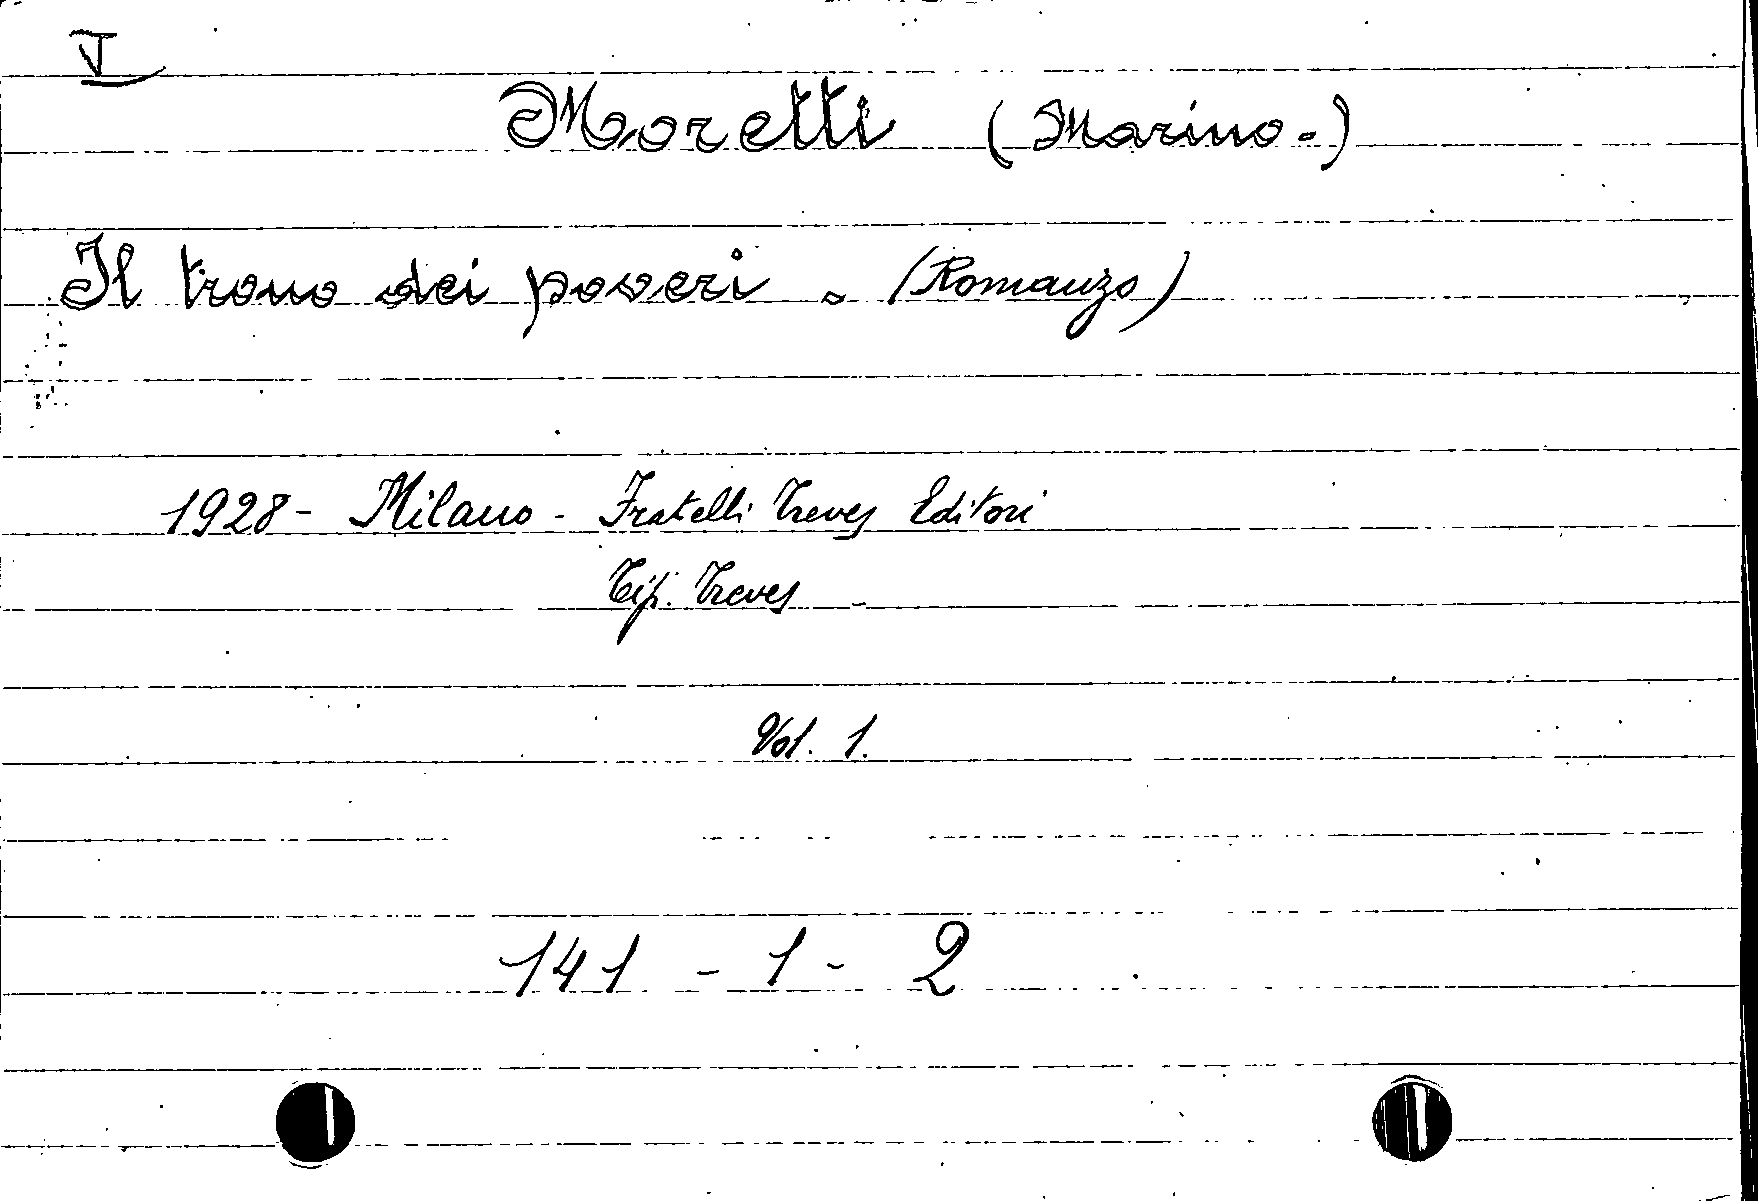 V
Moretti (Marino-)
Il trono dei poveri. (Romanzo)
1928 - Milano - Fratelli Treves Editori
Tip. Treves
Vol. 1.
141 - 1 - 2